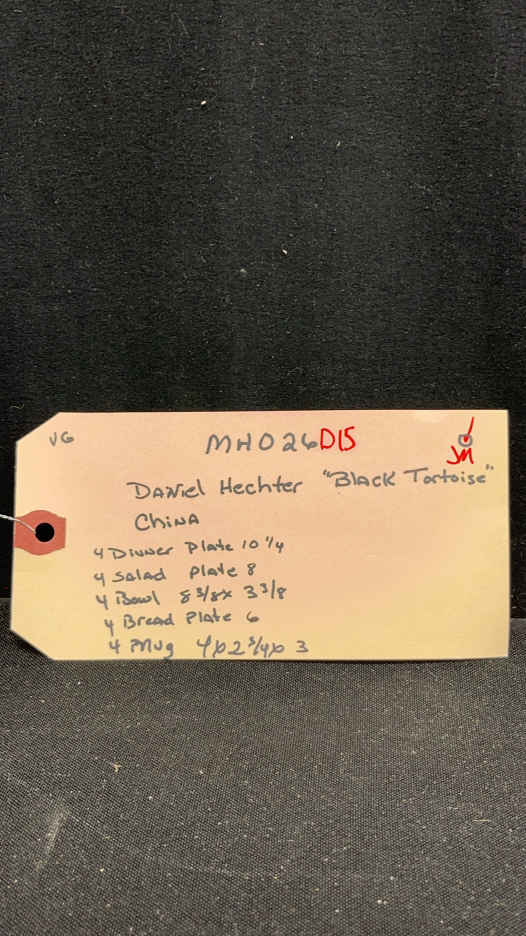 VG
MH026D15
JM
Daniel Hechter "Black Tortoise"
China
4 Dinner Plate 10 1/4
4 Salad Plate 8
4 Bowl 8 3/8 x 3 3/8
4 Bread Plate 6
4 Mug 4 x 2 3/4 x 3